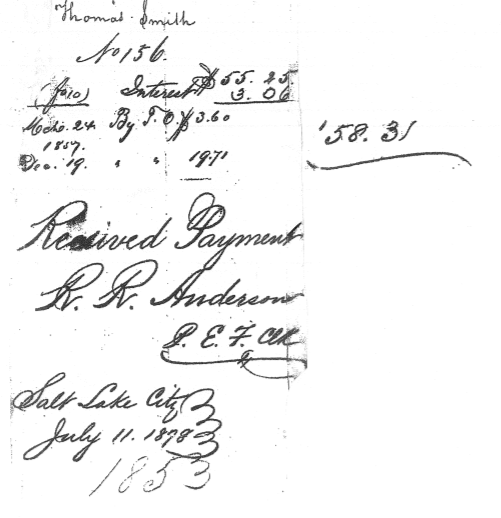 Thomas Smith
No 156.
$55. 25
Interest 3. 06
'58. 31
Mch. 24. By T. O. $ 3.60
1857.
Dec. 19. " " 19.71
Received Payment
R. R. Anderson
P. E. F. Clk
Salt Lake City
July 11. 1878
1853